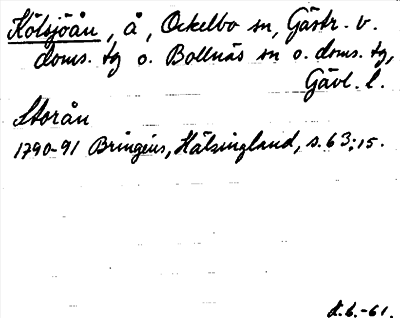 Kölsjöån, å, Ockelbo sn, Gästr. v.
doms. tg o. Bollnäs sn o. doms. tg,
Gävl. l.
Storån
1790-91 Bringéus, Hälsingland, s. 63; 15.
K.B.-61.